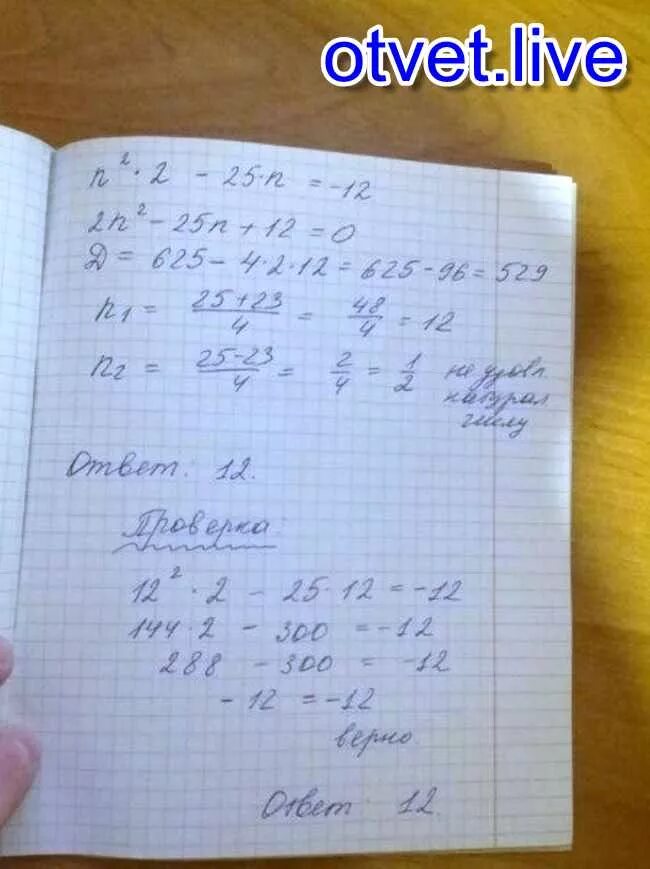 otvet.live
n² · 2 - 25·n = -12
2n² - 25n + 12 = 0
Д = 625 - 4·2·12 = 625 - 96 = 529
n₁ = (25+23)/4 = 48/4 = 12
n₂ = (25-23)/4 = 2/4 = 1/2 не удовл.
натурал
числу
Ответ: 12.
Проверка:
12² · 2 - 25·12 = -12
144·2 - 300 = -12
288 - 300 = -12
-12 = -12
верно
Ответ: 12.